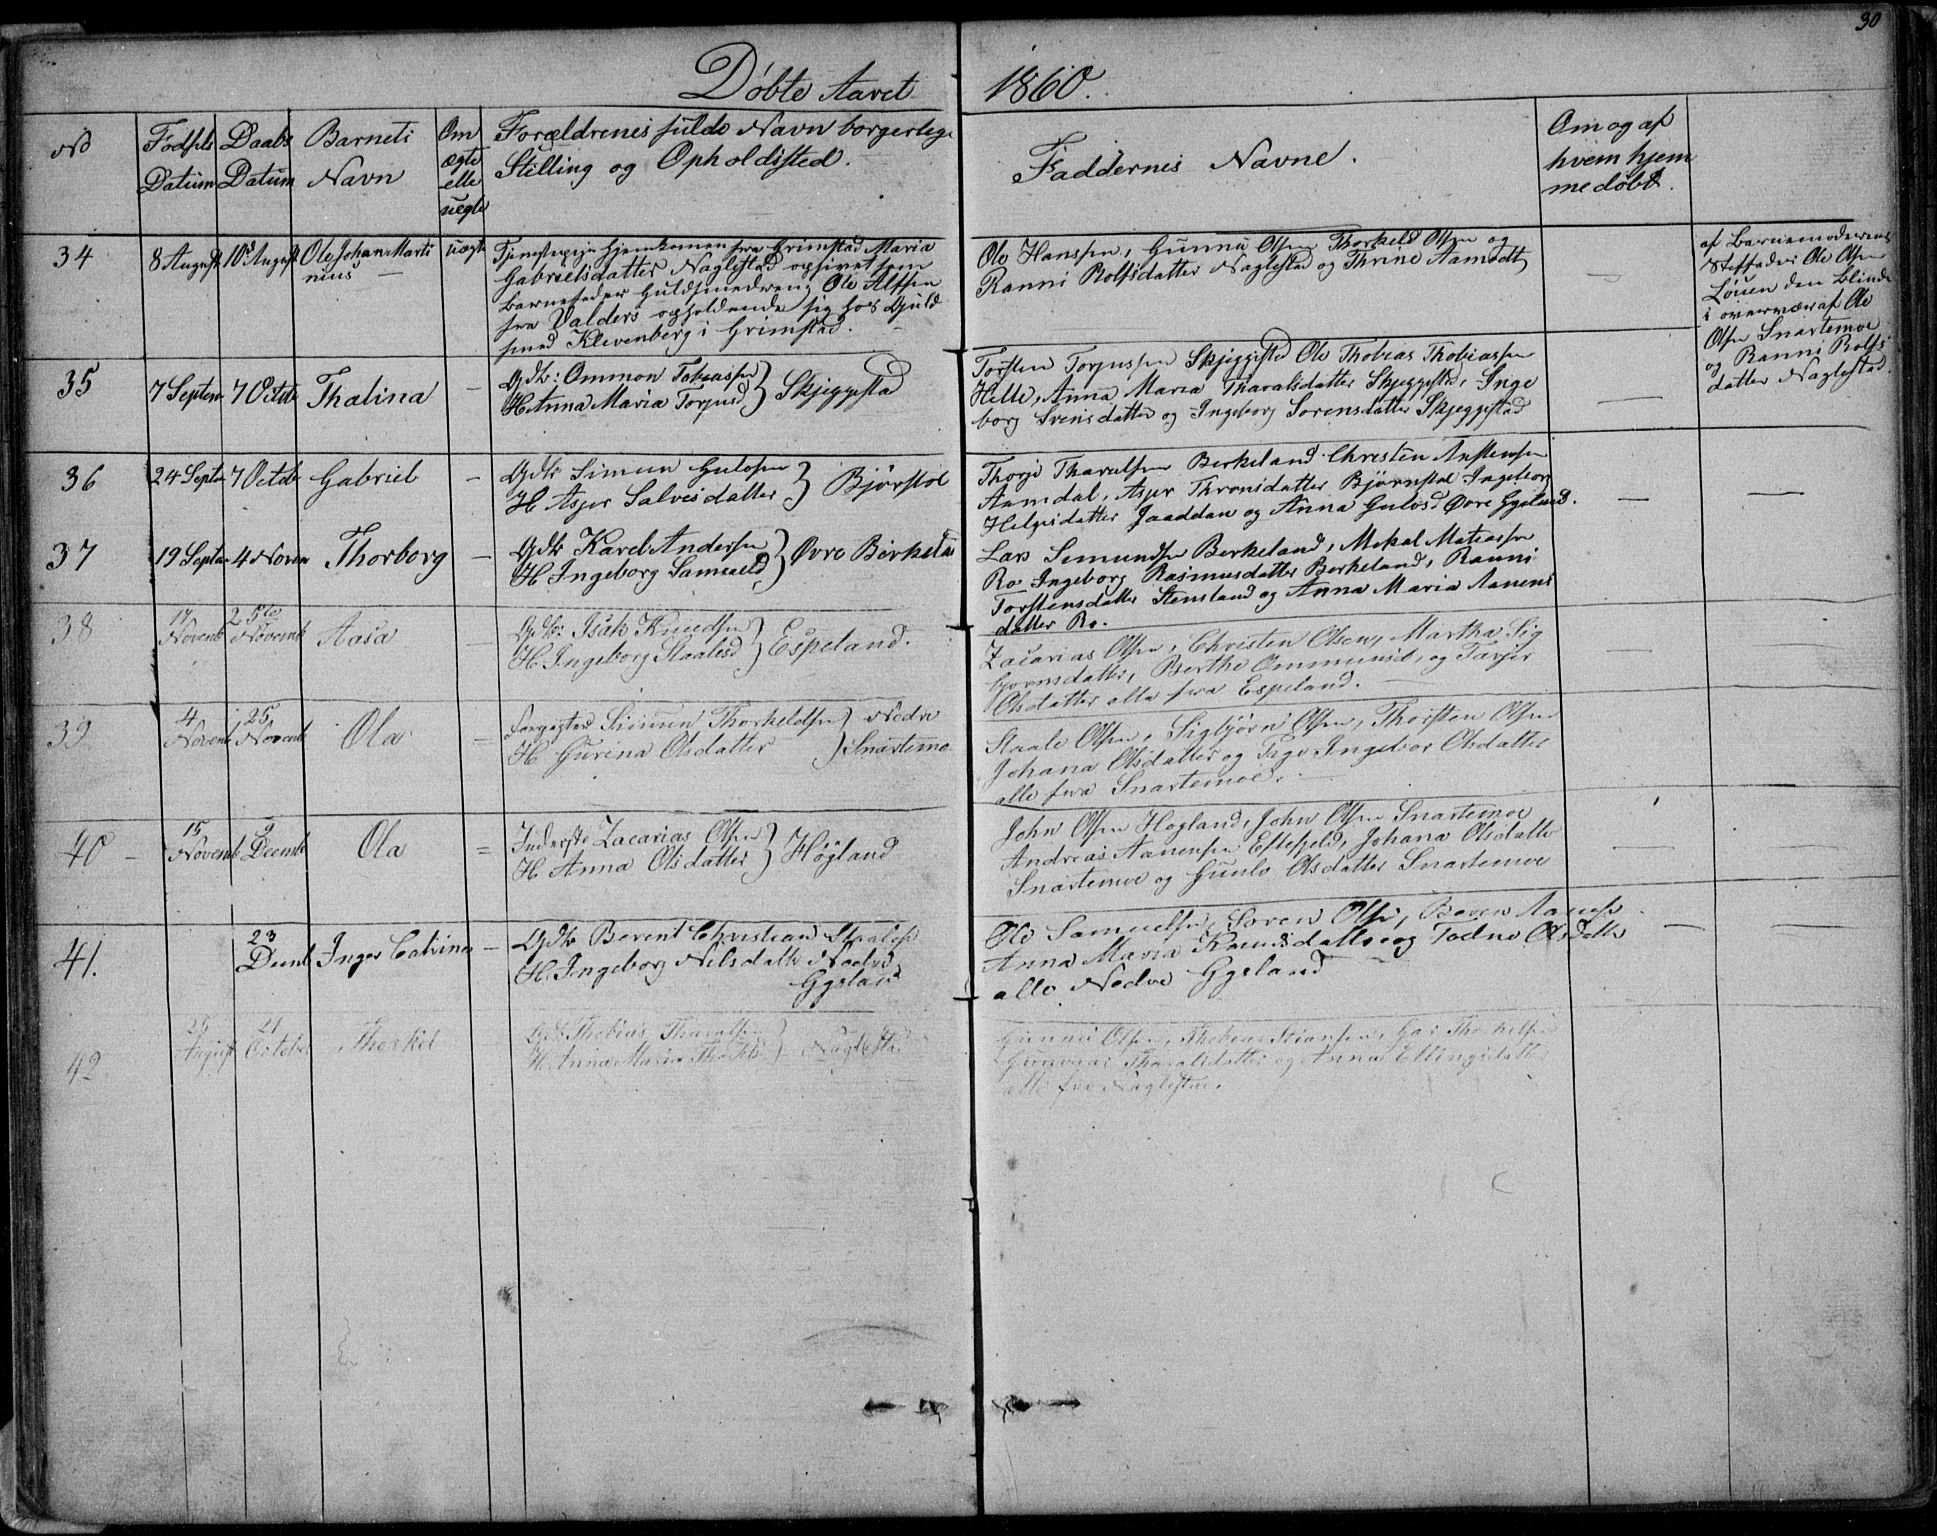 30
Døbte Aaret 1860.
No
Fødsels Datum
Daabs Datum
Barnets Navn
Om ægte elle uegte
Forældrenes fulde Navn borgerlige
Stilling og Opholdssted.
Faddernes Navne.
Om og af
hvem hjem
medøbt.
34
8 August
10 August
Ole Johan Marti
nius
uægte
Tjenestepige Hjemkomen fra Grimstad Maria
Gabrielsdatter Naglestad opgivet som
Barnefader Guldsmedsveng Ole Alfsen
fra Valders opholdende sig hos Guld
smed Klevenberg i Grimstad.
Ole Hanssen, Gunnu Olsen Thorkeld Olsen og
Ranni Rolfsdatter Naglestad og Thrine Aamodt
af Barnemoderens
Steffader Ole Olsen
Löuen den Blinde
i overværaf Ole
Olsen Snartemoe
og Ranni Rolfs
datter Naglestad.
35
7 Septem
7 Octob
Thalina
-
Gdb: Ommon Tobiassen
H Anna Maria Torjusd } Skjeggestad
Torsten Torjussen Skjeggestad Ole Thobias Thobiassen
Helle, Anna Maria Tharalsdatter Skjeggestad, Inge
borg Svensdatter og Ingeborg Sorensdatter Skjeggestad
36
24 Septe
7 Octob
Gabriel
-
Gdb Simen Gulosen
H Asjer Salvesdatter } Bjørstol
Thorje Tharalsen Berkeland Christen Anstensen
Aamdal, Asjer Thronsdatter Bjørnstol Ingeborg
Helgesdatter Jaaddan og Anna Gulosd Øvre Gyeland.
37
19 Septe
4 Novem
Thorborg
-
Gdb Karel Andersen
H Ingeborg Samueld } Øvre Birkela
Lars Semundsen Berkeland, Mekal Matiassen
Ro Ingeborg Rasmusdatter Berkeland, Ranni
Torstensdatter Stensland og Anna Maria Aanens
datter Ro.
38
17
Novemb
25de
Novemb
Aasa
-
Gdb: Isak Knudsen
H Ingeborg Staalesd } Espeland.
Zacarias Olsen, Christen Olsen, Martha Sig
bjornsdatter, Berthe Ommunsd, og Tarjer
Olsdatter alle fra Espeland.
39
4
Novem
25
Novemb
Ola
-
Simen Thorkeldsen } Nedre
H Gurina Olsdatter } Snartemo
Staale Olsen, Sigbjørn Olsen, Thorsten Olsen
Johana Olsdatter og Pige Ingebor Olsdatter
alle fra Snartemoe.
40
15
Novemb
9
Decemb
Ola
=
Inderste Zacarias Olsen
H Anna Olsdatter } Högland
John Olsen Hogland, John Olsen Snartemoe
Andreas Aanensen Eftefjeld, Johana Olsdatter
Snartemoe og Gunlo Olsdatter Snartemoe
41.
23
Decmb
Inger Catrina
-
Gdb Berent Christian Staalesen
H. Ingeborg Nilsdatter Nedre
Gyeland
Ole Samuelsen, Soren Olsen, Beren Aanesen
Anna Maria Knudsdatter og Todne Olsdatter
alle Nedre Gyeland
42
August
21
October
Therkel
Gdb Thobias Tharalsen
H. Anna Maria } Naglestad
Gunnu Olsen, Thobias Stiansen, Thorkelsen
Gunvaar Tharalsdatter og Anna Ellingsdatter
alle fra Naglestad.